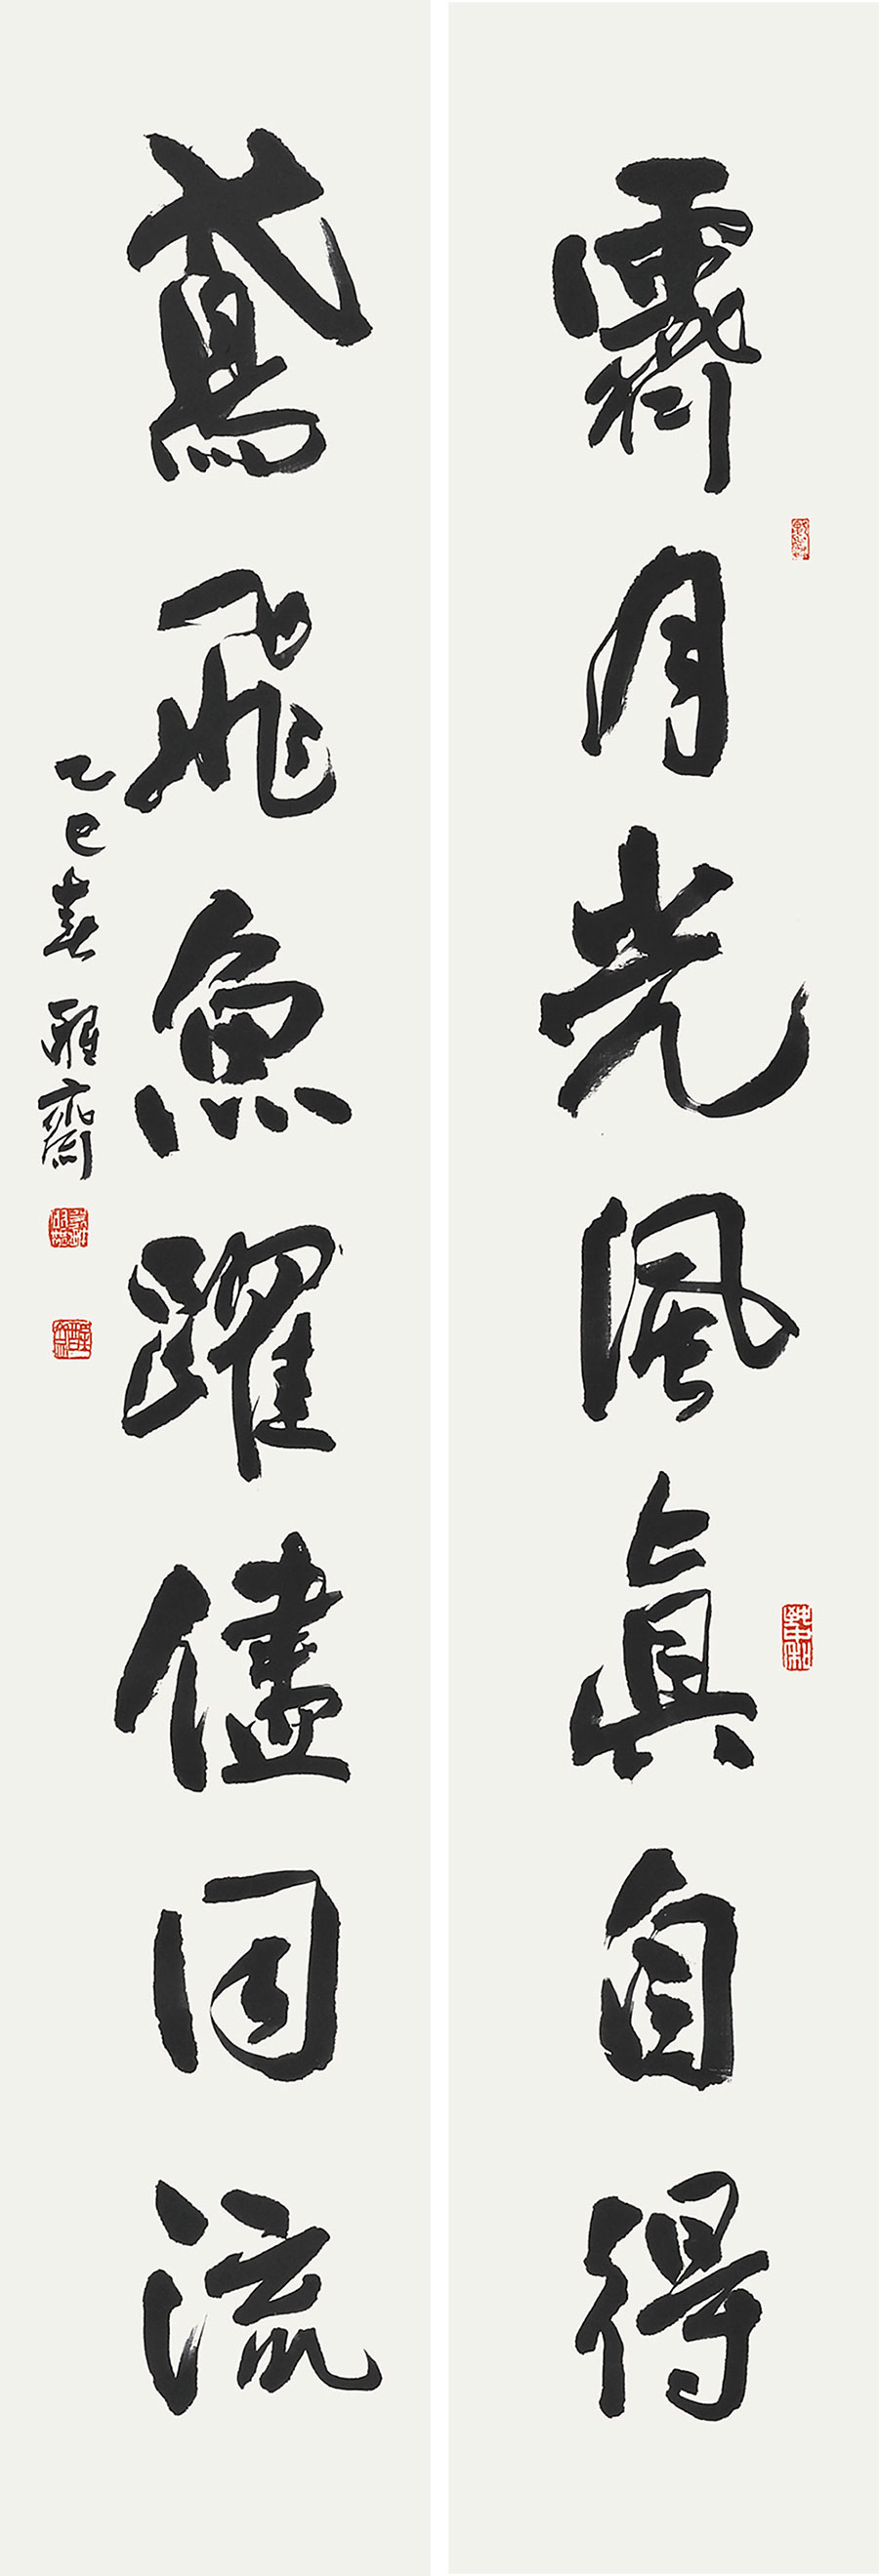 霽月光風真自得
鳶飛魚躍儘同流
乙巳春 雅齋